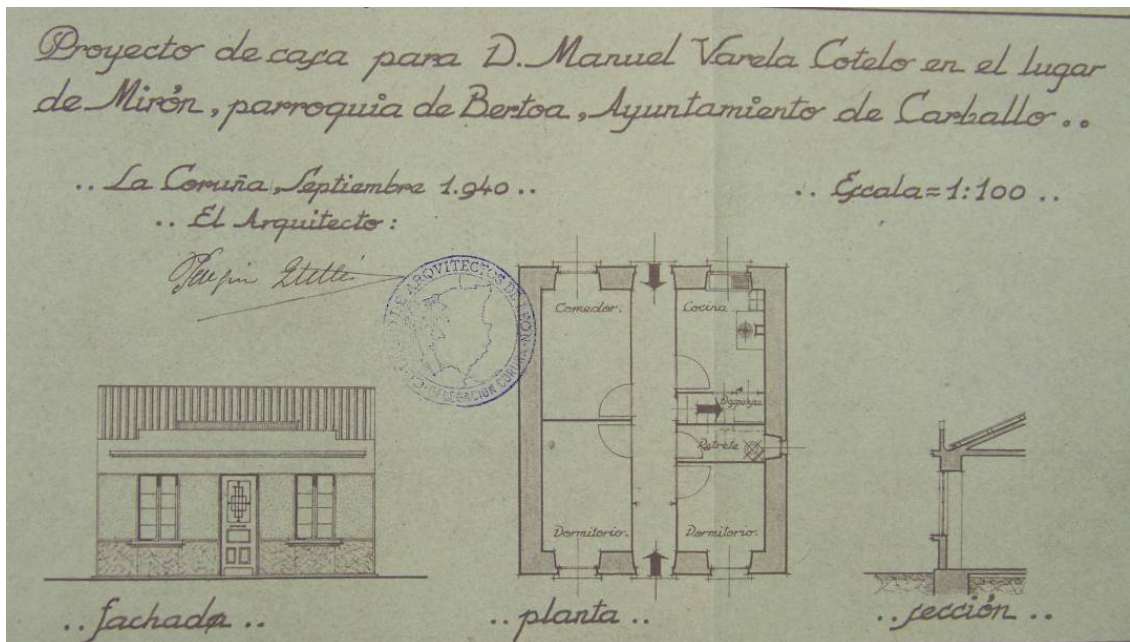 Proyecto de casa para D. Manuel Varela Cotelo en el lugar
de Mirón, parroquia de Bertoa, Ayuntamiento de Carballo..
.. La Coruña, Septiembre 1.940 ..
.. Escala=1:100 ..
.. El Arquitecto:
ARQVITECTOS DE LEON
DELEGACION CORUÑA
Comedor.
Cocina
Despensa
Retrete
Dormitorio.
Dormitorio.
.. fachada ..
.. planta ..
.. sección ..